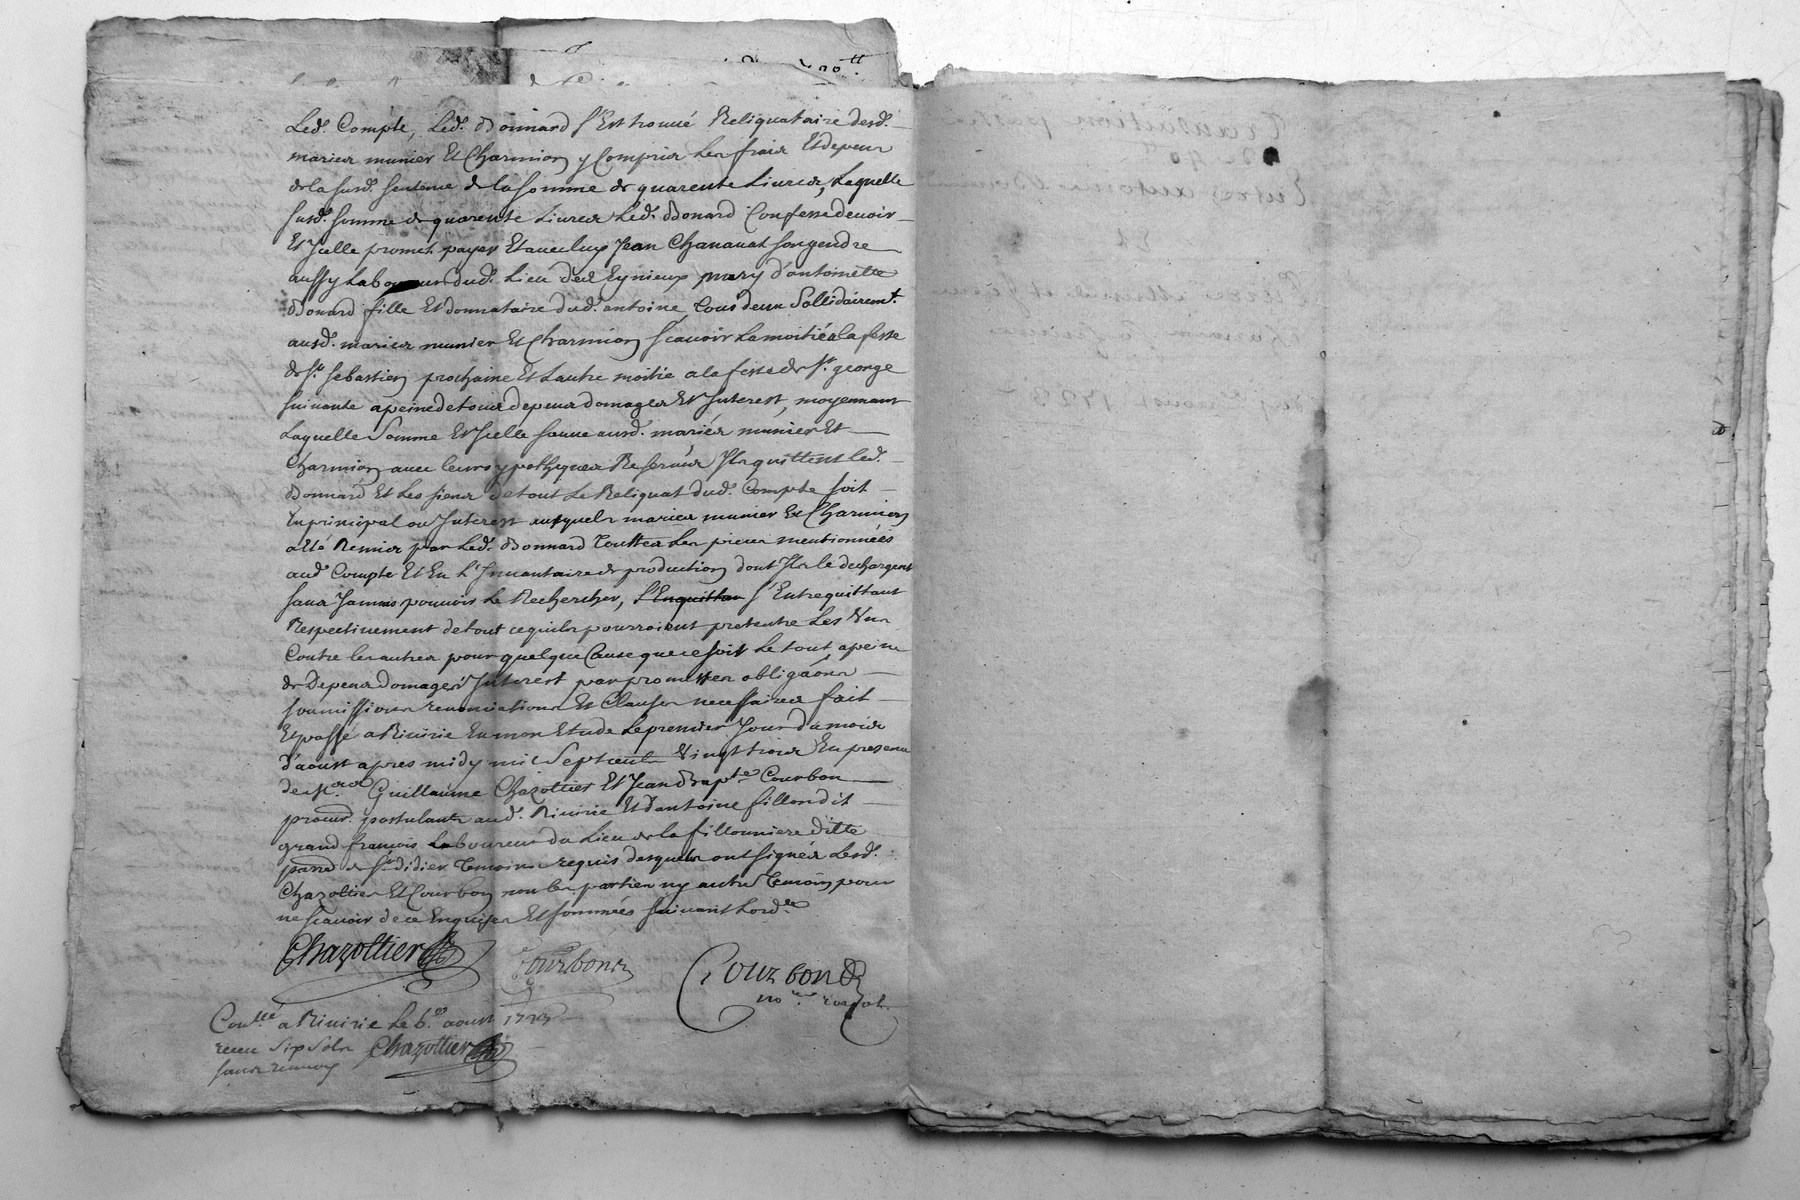 Led. Compte, Led. Bonnard s'Est trouué Reliquataire desd.
mariez munier Et Charmion y Compris Les frais Et depens
de la susd. sentence de la somme de quarente Liures, Laquelle
susd. somme de quarente Liures Led. Bonard Confesse deuoir
Et Jcelle promet payer Et auec luy Jean Chanauat son gendre
aussy Laboureur dud. Lieu des Eynieux mary d'antoinette
Bonard fille Et donnataire dud. antoine, tous deux Sollidairemt.
ausd. mariez munier Et Charmion scauoir La moitié a la feste
de st. sebastien prochaine Et Lautre moitie a la feste de st. george
suiuante a peine de tous depens domages Et Jnterest, moyennant
Laquelle Somme Et Jcelle sauue ausd. mariés munier Et
Charmion auec leurs ypotheques Reserués Jls quittent led.
Bonnard Et Les siens de tout Le Reliquat dud. Compte soit
En principal ou Jnterest ausquels mariez munier Et Charmion
a Eté Remis par Led. Bonnard touttes Les pieces mentionnées
aud. Compte Et En L'Jnuantaire de production dont Jls le dechargent
sans Jamais pouuoir Le Rechercher, s'Enquittan s'Entrequittant
Respectiuement de tout ce quils pourroient pretendre Les Vns
Contre les autres pour quelque Cause que ce soit Le tout a peine
de Depens domages Jnterest par promesses obligaons
soumissions renonciations Et Clauses necessaires fait
Et passé a Riuirie En mon Etude Le premier Jour du mois
d'aoust apres midy mil Sept cent Vingt trois En presence
de Guillaume Chazottier Et Jean Bapte. Courbon
procurs. postulants aud. Riuirie Et d'antoine fillon dit
grand francois Laboureur du Lieu de la fillonniere ditte
parre. de st. didier temoins requis desquels ont signés Lesd.
Chazottier Et Courbon non les parties ny autre temoin pour
ne scauoir de ce Enquises Et sommées suiuant Lordce.
Chazottier Courbon Courbon
nore. royal
Conllé a Riuirie Le 6. aoust 1723
receu six sols Chazottier
sans renuoy